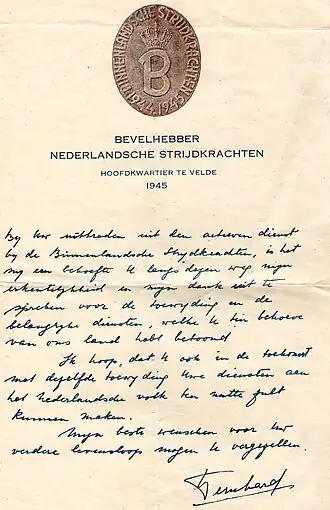 BINNENLANDSCHE STRIJDKRACHTEN
1944-1945
B
BEVELHEBBER
NEDERLANDSCHE STRIJDKRACHTEN
HOOFDKWARTIER TE VELDE
1945
By Uw uittreden uit den actieven dienst
by de Binnenlandsche Strijdkrachten, is het
my een behoefte U langs dezen weg myn
erkentelijkheid en myn dank uit te
spreken voor de toewyding en de
belangryke diensten, welke U ten behoeve
van ons land hebt betoond
Ik hoop, dat U ook in de toekomst
met dezelfde toewyding Uwe diensten aan
het Nederlandsche volk ten nutte zult
kunnen maken.
Myn beste wenschen voor Uw
verdere levensloop mogen U vergezellen.
Bernhard